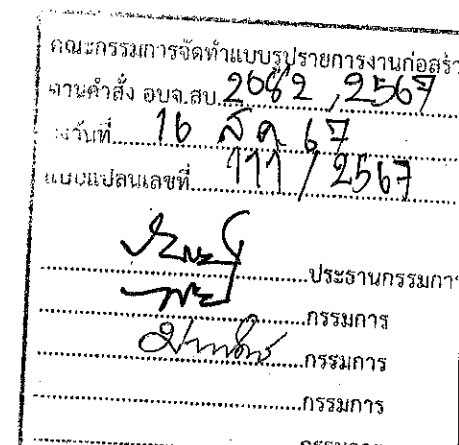 คณะกรรมการจัดทำแบบรูปรายการงานก่อสร้า
ตามคำสั่ง อบจ.สบ. 2682 / 2567
ลงวันที่ 16 ส.ค. 67
แบบแปลนเลขที่ 111 / 2567
ประธานกรรมการ
กรรมการ
กรรมการ
กรรมการ
กรรมการ